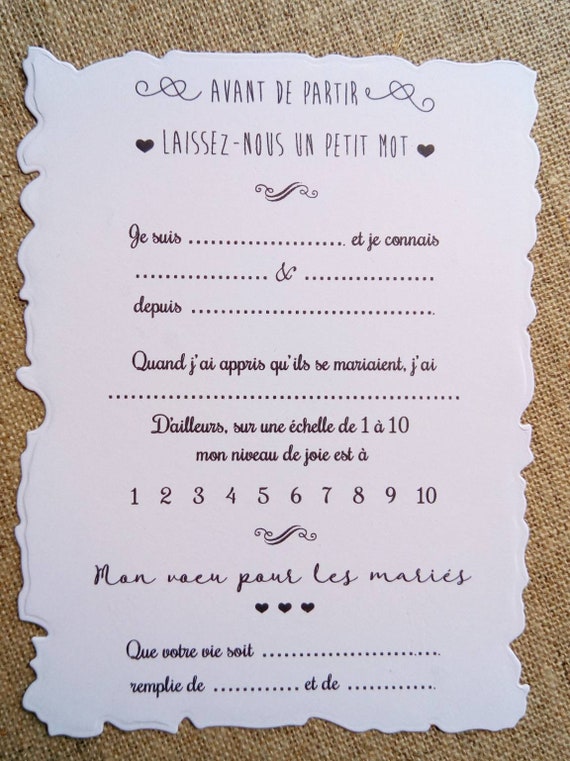 AVANT DE PARTIR
LAISSEZ-NOUS UN PETIT MOT
Je suis ...................... et je connais
................... & ...................
depuis ...................................
Quand j'ai appris qu'ils se mariaient, j'ai
..................................................
D'ailleurs, sur une échelle de 1 à 10
mon niveau de joie est à
1 2 3 4 5 6 7 8 9 10
Mon voeu pour les mariés
Que votre vie soit ..........................
remplie de ............ et de .............